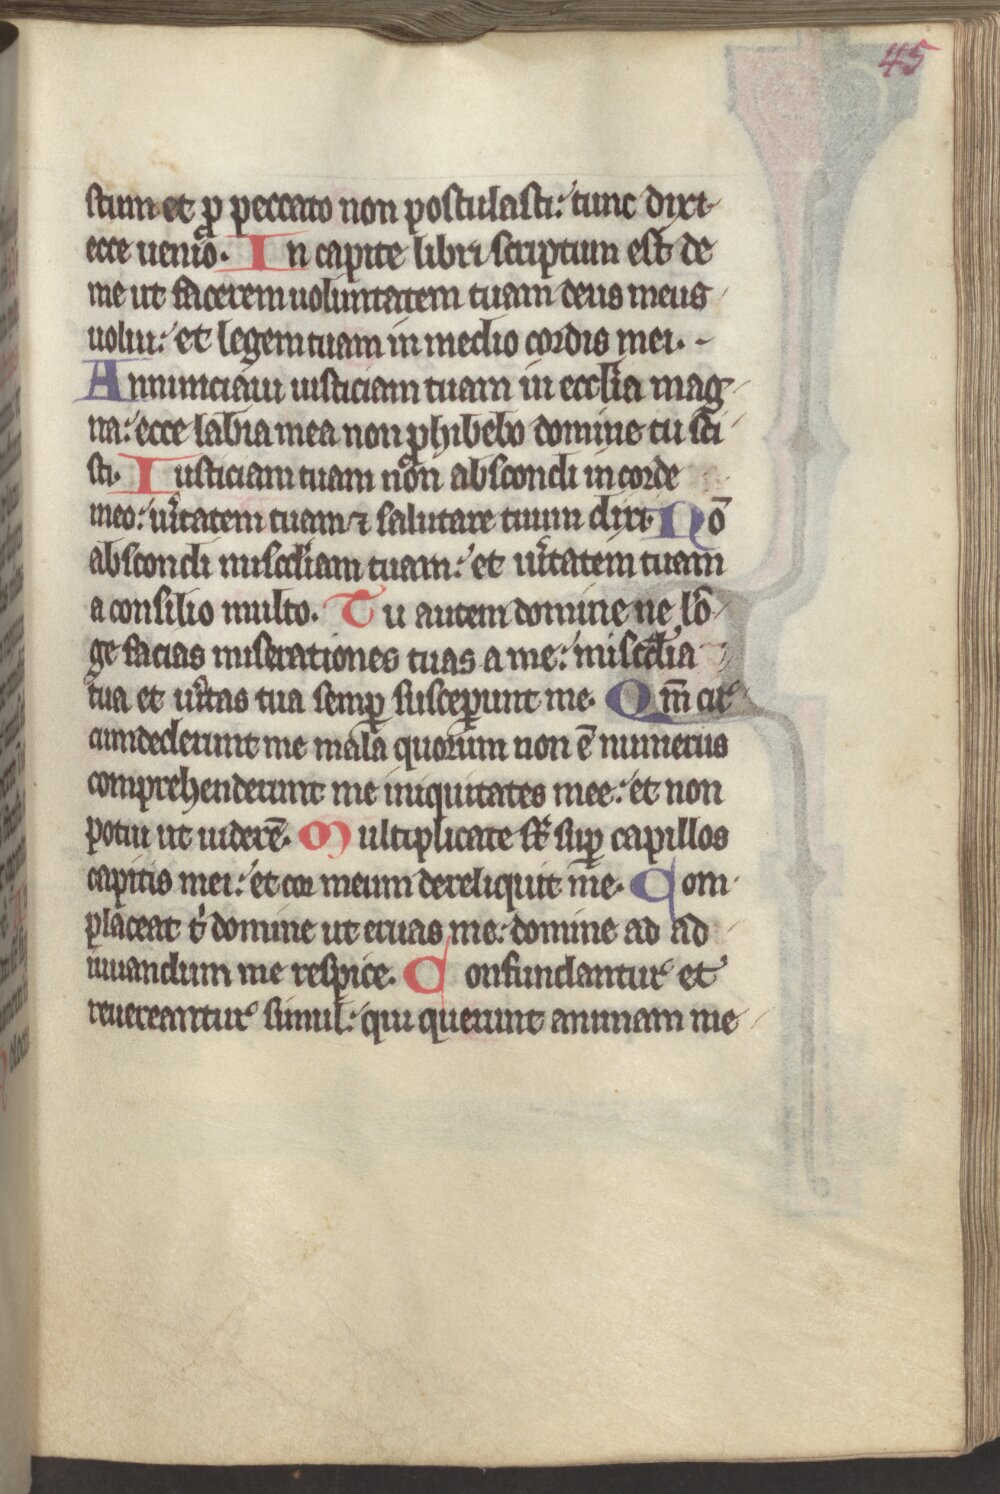 45
stum et ꝓ peccato non postulasti: tunc dixi
ecce uenio. In capite libri scriptum est de
me ut facerem uoluntatem tuam deus meus
uolui: et legem tuam in medio cordis mei.
Annunciaui iusticiam tuam in eccl̄ia mag
na: ecce labia mea non ꝓhibebo domine tu sci
sti. Iusticiam tuam non abscondi in corde
meo: ūitatem tuam ⁊ salutare tuum dixi. Nō
abscondi misc̄diam tuam: et ūitatem tuam
a consilio multo. Tu autem domine ne lō
ge facias miserationes tuas a me: misc̄dia
tua et ūitas tua semꝑ susceꝑunt me. Qm̄ cir
cumdederunt me mala quorum non ē numerus
comprehenderunt me iniquitates mee: et non
potui ut uiderē. Multiplicate st̄ suꝑ capillos
capitis mei: et cor meum dereliquit me. Com
placeat t̄ domine ut eruas me: domine ad ad
iuuandum me respice. Confundantur et
reuereantur simul: qui querunt animam me